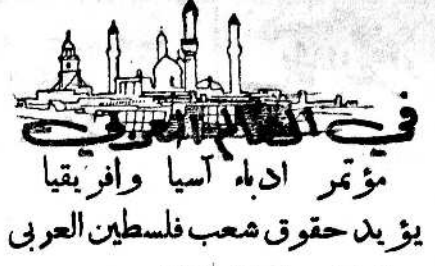 في العالم العربي
مؤتمر ادباء آسيا وافريقيا
يؤيد حقوق شعب فلسطين العربى